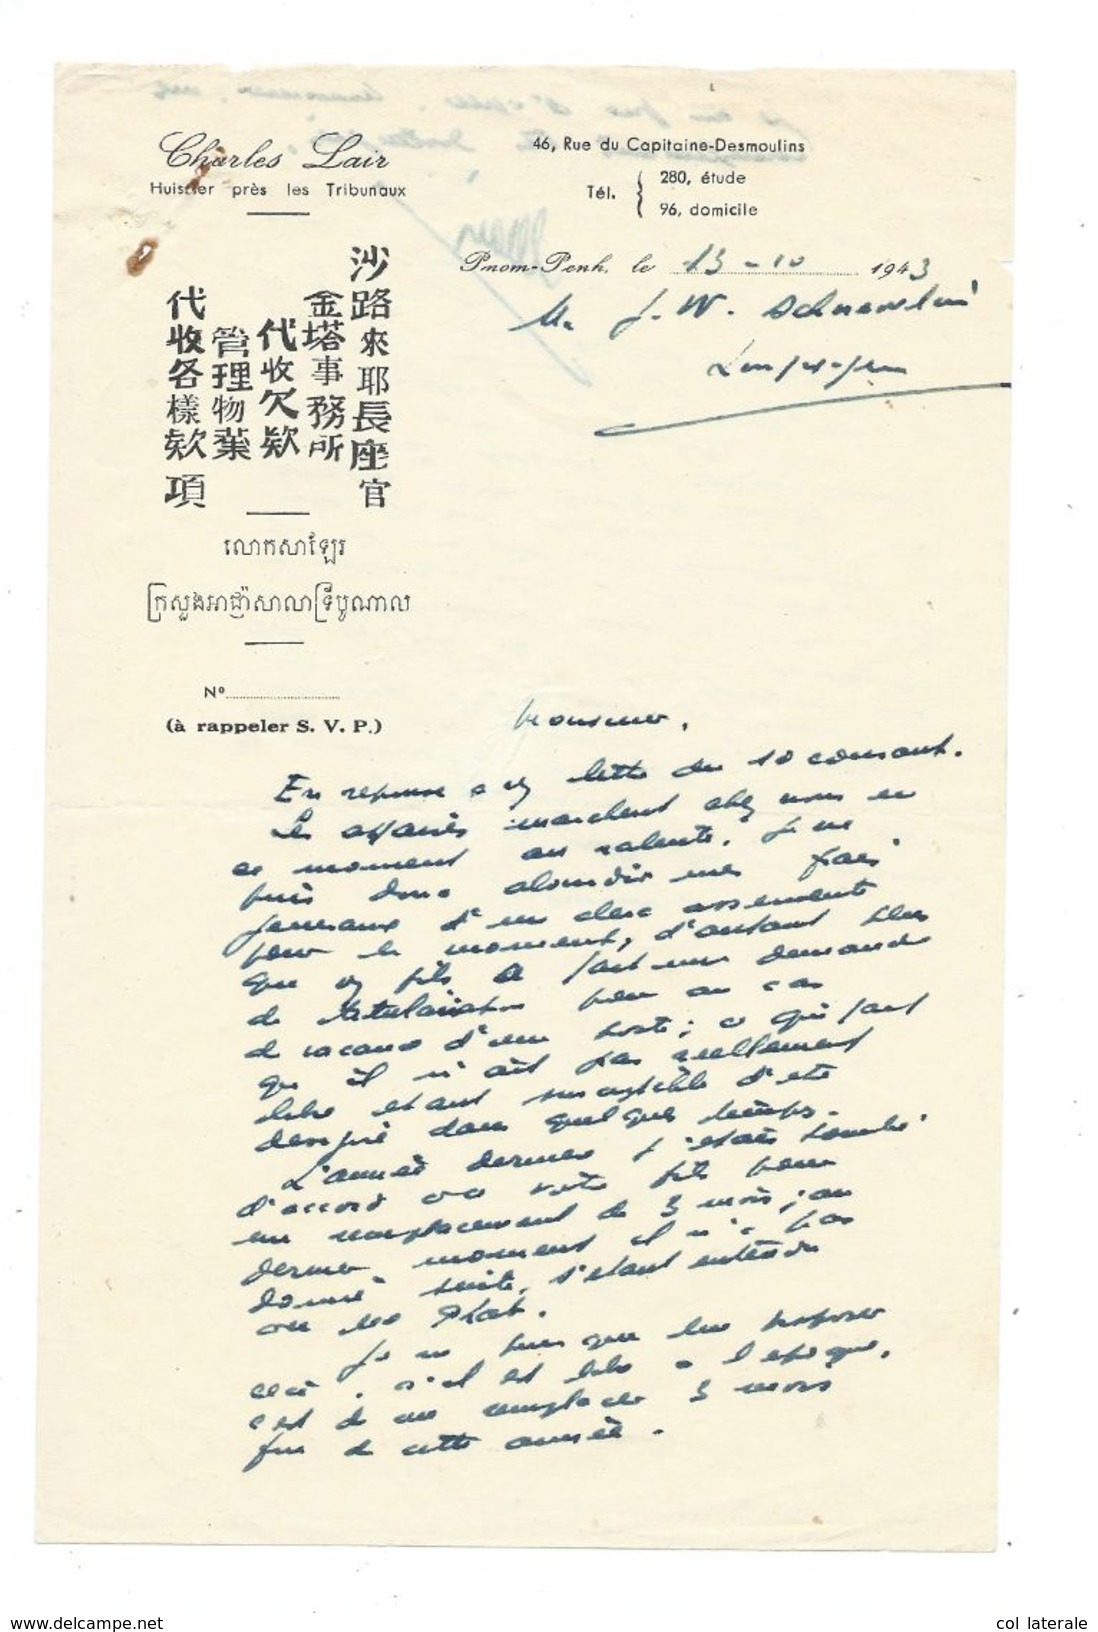 Charles Lair
Huissier près les Tribunaux
46, Rue du Capitaine-Desmoulins
Tél. 280, étude
96, domicile
Pnom-Penh, le 13-10 1943
M. J. W.
沙路來耶長座官
金塔事務所
代收欠欵
管理物葉
代收各樣欵項
លោកសាឡែរ
ក្រសួងអាជ្ញាសាលាទ្រីបូណាល
Nº
(à rappeler S. V. P.)
Monsieur,
En reponse a lettre du 10 courant.
Les affaires marchent chez nous en
ce moment au ralenti. Je ne
puis donc alourdir mes frais
generaux d'un clerc assermenté
pour le moment, d'autant plus
que fils a fait une demande
de titularisation pour au cas
de vacance d'un poste; ce qui fait
qu'il n'est pas reellement
libre etant susceptible d'etre
designé dans quelque temps.
L'année derniere j'etais tombé
d'accord avec votre fils pour
un remplacement de 3 mois; au
dernier moment il n'a pas
donné suite, s'etant entendu
avec Me Plat.
Je ne puis que lui proposer
ceci, s'il est libre a l'epoque,
c'est de me remplacer 3 mois
fin de cette année.
www.delcampe.net
col laterale